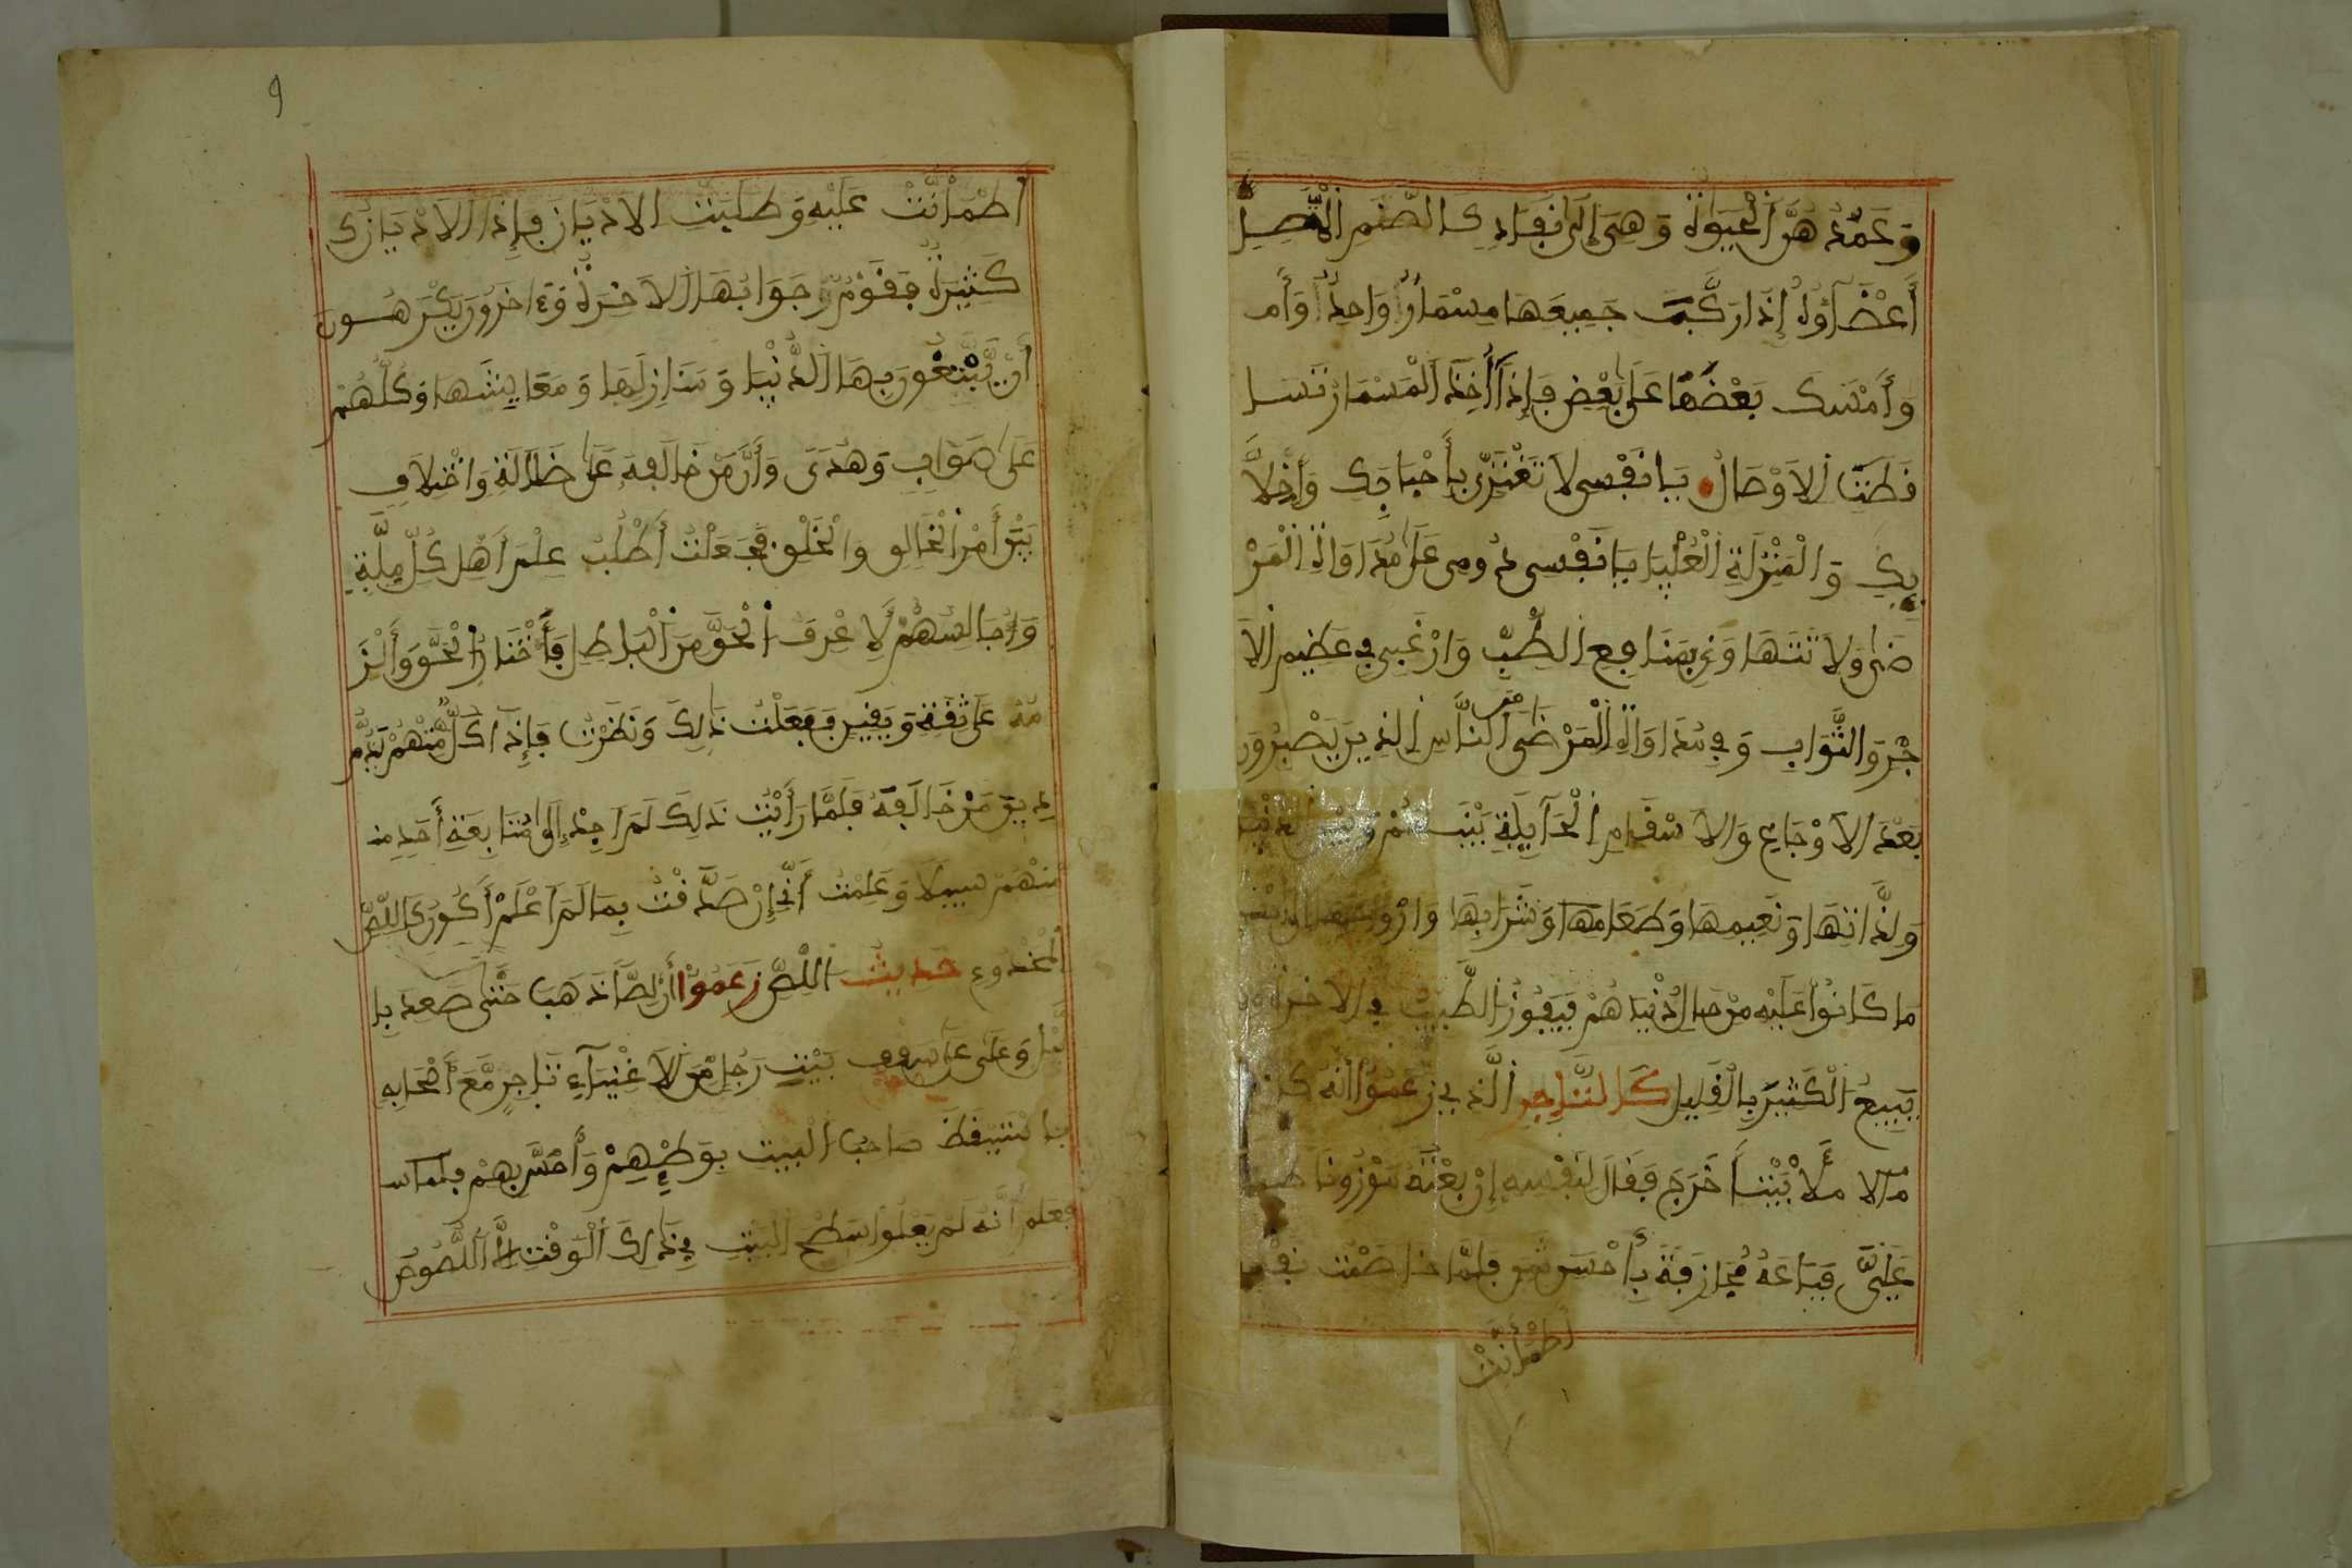 وَعَمُدُ هَذَا الْحَيَوٰةِ وَهِيَ إِلَى نَفَادٍ كالصَّنَمِ الْمُفَصَّلِ
أَعْضَآؤُهُ إِذَا رَكَّبَ جَمِيعَهَا مِسْمَارٌ وَاحِدٌ وَأَم
وَأَمْسَكَ بَعْضُهَا عَلَى بَعْضٍ فَإِذَا أُخِذَ الْمَسْمَارُ تَسَا
قَطَتِ الاَوْصَالُ يَا نَفْسِي لاَ تَغْتَرِّي بِأَحْبَابِكِ وَأَخِلاَّ
ئِكِ وَالْمَنْزِلَةِ الْعُلْيَا يَا نَفْسِي دُومِي عَلَى مُدَاوَاةِ الْمَرْ
ضَى وَلاَ
جْرِ وَالثَّوَابِ وَفِي مُدَاوَاةِ الْمَرْضَى مِنَ النَّاسِ الَّذِينَ يَصْبِرُونَ
بَعْدَ الاَوْجَاعِ وَالاَسْقَامِ الْحَآيِلَةِ بَيْنَهُمْ وَبَيْنَ الدُّنْيَا
وَلَذَّاتِهَا وَنَعِيمِهَا وَطَعَامِهَا وَشَرَابِهَا
مَا كَانُوا عَلَيْهِ مِنْ حَالِ دُنْيَاهُمْ فَيَفُوزُ الطَّبِيبُ فِي الاَخِرَةِ
يَبِيعُ الْكَثِيرَ بِالْقَلِيلِ كَالتَّاجِرِ الَّذِي زَعَمُوا أَنَّهُ كَانَ
مَلأَ بَيْتاً خَرَجَ فَقَالَ لِنَفْسِهِ إِنْ بِعْتُهُ مَوْزُوناً طَالَ
عَلَيَّ فَبَاعَهُ مُجَازَفَةً بِأَخَسِّ شَيْءٍ فَلَمَّا خَاصَمْتُ نَفْسِي
اطْمَأَنَّتْ
9
اطْمَأَنَّتْ عَلَيْهِ وَطَلَبْتُ الاَدْيَانَ فَإِذَا الاَدْيَانُ
كَثِيرَةٌ فَقَوْمٌ يَرْجُوَا بِهَا الاَخِرَةَ وَءَاخَرُونَ يَكْرَهُونَ
أَنْ يَّبْتَغُونَ بِهَا الدُّنْيَا وَمَنَازِلَهَا وَمَعَايِشَهَا وَكُلُّهُمْ
عَلَى صَوَابٍ وَهُدىً وَأَنَّ مَنْ خَالَفَهُ عَلَى ضَلاَلَةٍ وَاخْتِلاَفٍ
بَيْنَ أَمْرِ الْخَالِقِ وَالْخَلْقِ فَجَعَلْتُ أَطْلُبُ عِلْمَ أَهْلِ كُلِّ مِلَّةٍ
وَأُجَالِسُهُمْ لاَِعْرِفَ الْحَقَّ مِنَ الْبَاطِلِ فَأَخْتَارُ الْحَقَّ وَأَلْزَ
مُهُ عَلَى ثِقَةٍ وَيَقِينٍ فَفَعَلْتُ ذَلِكَ وَنَظَرْتُ فَإِذَا كُلٌّ مِّنْهُمْ يَذُمُّ
دِينَ مَنْ خَالَفَهُ فَلَمَّا رَأَيْتُ ذَلِكَ لَمَ اَجِدْ إِلَى مُتَابَعَةِ أَحَدٍ مِنْ
مِنْهُمْ سَبِيلاً وَعَلِمْتُ أَنِّي إِنْ صَدَّقْتُ بِمَا لَمَ اَعْلَمْ أَكُونُ كَاللِّصِّ
الْمَخْدُوعِ حَدِيثُ اللِّصِّ زَعَمُوا أَنَّ لِصّاً ذَهَبَ حَتَّى صَعِدَ بِا
لَّيْلِ وَعَلَى عَلَى سَقْفِ بَيْتِ رَجُلٍ مِّنَ الاَغْنِيَآءِ تَاجِرٍ مَّعَ أَصْحَابِهِ
فاسْتَيْقَظَ صَاحِبُ الْبَيْتِ بِوَطْئِهِمْ وَأَحَسَّ بِهِمْ
فعَلِمَ أَنَّهُ لَمْ يَعْلُوا سَطْحَ الْبَيْتِ فِي ذَلِكَ الْوَقْتِ إِلاَّ اللُّصُوصُ